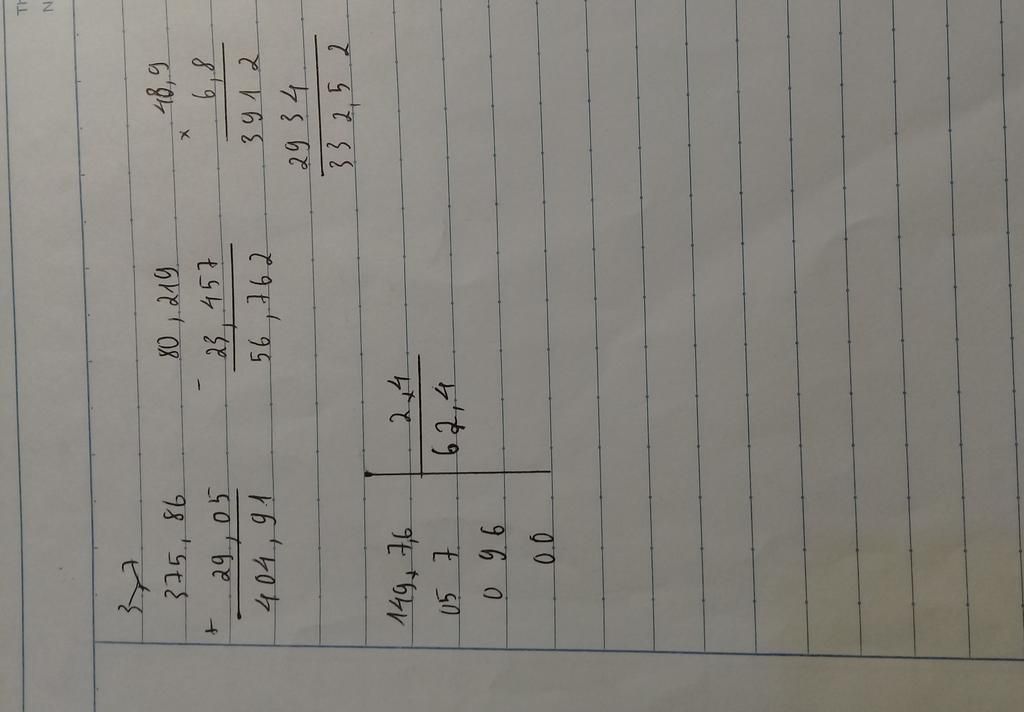 3,7
375,86
+
29,05
404,91
80,219
-
23,457
56,762
48,9
×
6,8
3912
2934
332,52
149,7,6 2,4
05 7 62,4
0 9 6
00